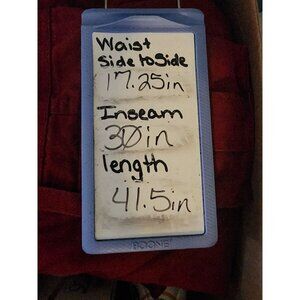 Waist
Side to Side
17.25in
Inseam
30in
length
41.5in
BOONE